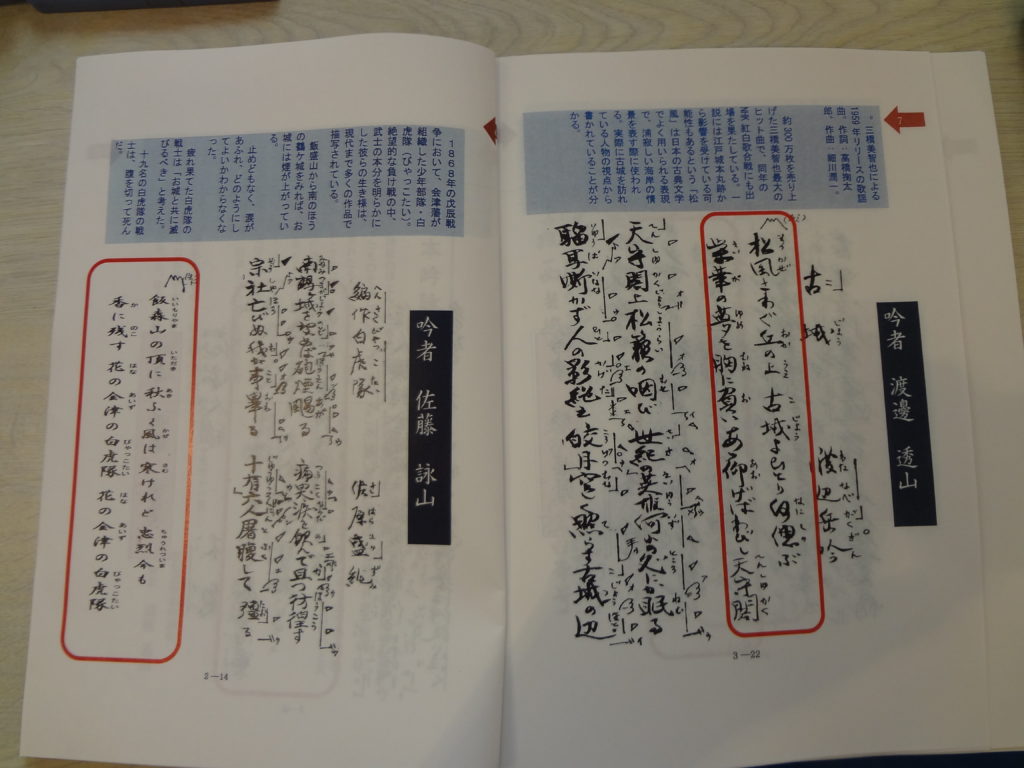 7
三橋美智也による
1959年リリースの歌謡
曲。作詞:高橋掬太
郎 作曲:細川潤一。
約300万枚を売り上
げた三橋美智也最大の
ヒット曲で、同年の
場を果たしている。一
説には江戸城本丸跡か
ら影響を受けている可
能性もあるという。「松
風」は日本の古典文学
でよく用いられる表現
で、浦寂しい海岸の情
景を表す際に使われ
る。実際に古城を訪れ
ている人物の視点から
書かれていることが分
かる。
吟者 渡邊 透山
古城
松風さわぐ丘の上 古城よひとり何偲ぶ
栄華の夢を胸に負い あゝ仰げばわびし天守閣
天守閣上松籟咽び
3―22
1868年の戊辰戦
争において、会津藩が
組織した少年部隊・白
虎隊(びゃっこたい)。
絶望的な負け戦の中、
武士の本分を明らかに
した彼らの生き様は、
現代まで多くの作品で
描写されている。
飯盛山から南のほう
の鶴ケ城をみれば、お
城には煙が上がってい
る。
止めどもなく、涙が
あふれ、どのようにし
てよいかわからなくな
った。
疲れ果てた白虎隊の
戦士は「お城と共に滅
びるべき」と考えた。
十九名の白虎隊の戦
士は、腹を切って死ん
だ。
吟者 佐藤 詠山
編作白虎隊 佐原盛純
南鶴ヶ城を望めば砲煙颺る
痛哭涙を飲んで且つ彷徨す
宗社亡びぬ我が事畢る
十有六人屠腹して僵る
飯森山の頂に 秋ふく風は 寒けれど 忠烈今も
香に残す 花の会津の白虎隊 花の会津の白虎隊
2―14